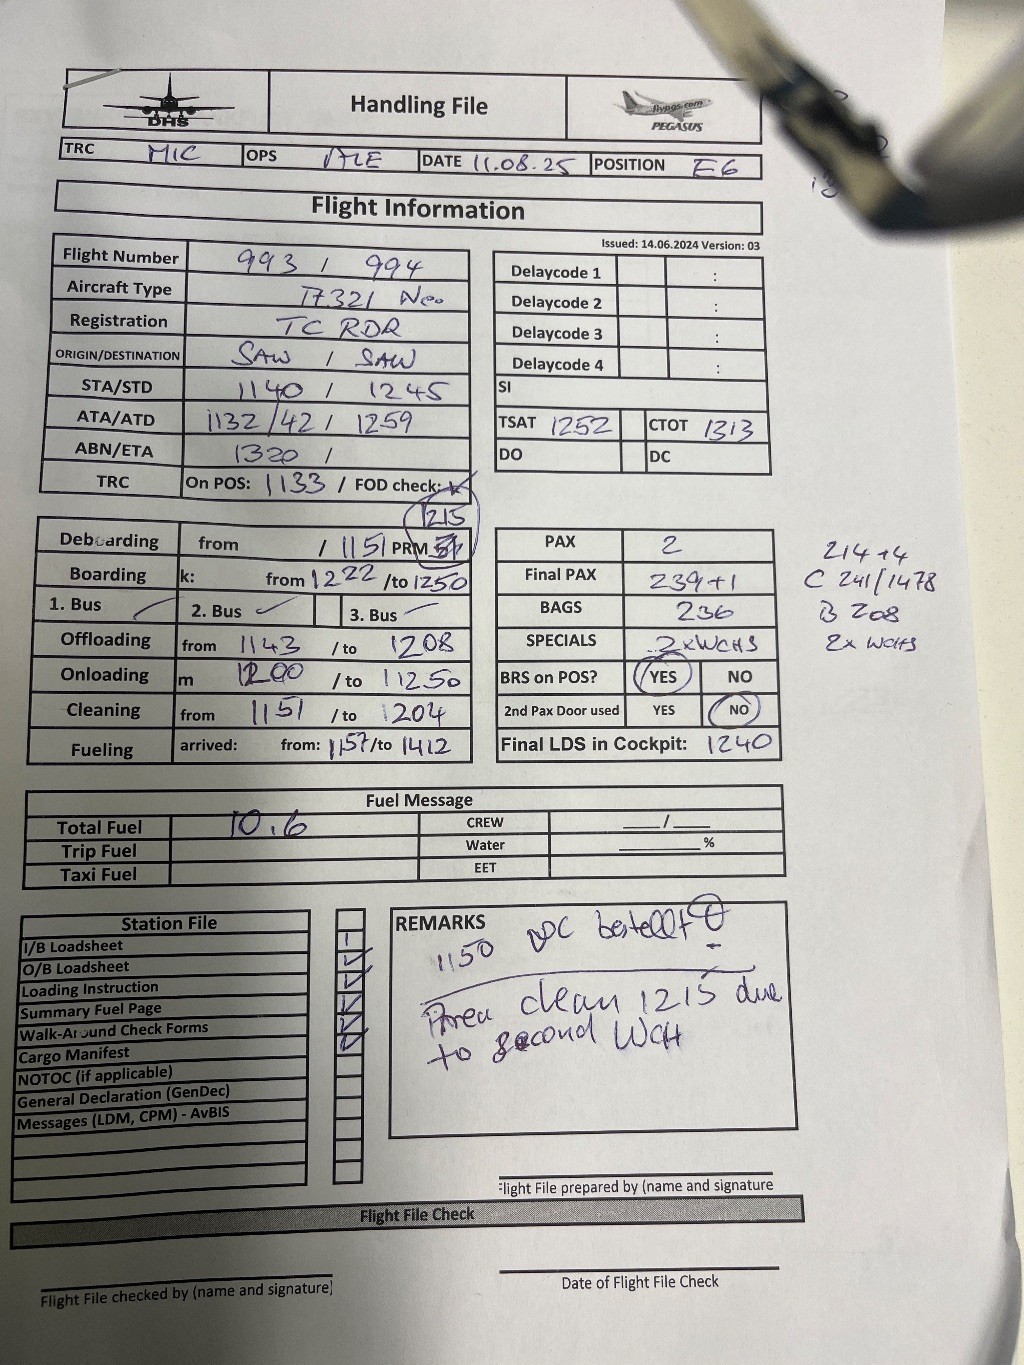 DHS
Handling File
flypgs.com
PEGASUS
TRC MIC OPS DATE 11.08.25 POSITION E6
Flight Information
Issued: 14.06.2024 Version: 03
Flight Number 993 / 994
Aircraft Type 321 Neo
Registration TC RDR
ORIGIN/DESTINATION SAW / SAW
STA/STD 1140 / 1245
ATA/ATD 1132/42 / 1259
ABN/ETA 1320 /
TRC On POS: 1133 / FOD check:
Delaycode 1 :
Delaycode 2 :
Delaycode 3 :
Delaycode 4 :
SI
TSAT 1252 CTOT 1313
DO DC
1215
Deboarding from / 1151 PRM
Boarding k: from 1222 /to 1250
1. Bus 2. Bus 3. Bus
Offloading from 1143 /to 1208
Onloading m 1200 /to 1250
Cleaning from 1151 /to 1204
Fueling arrived: from: 1157/to 1412
PAX 2
Final PAX 239+1
BAGS 236
SPECIALS 2xWCHS
BRS on POS? YES NO
2nd Pax Door used YES NO
Final LDS in Cockpit: 1240
214+4
C 241/1478
B 208
2x WCHS
Fuel Message
Total Fuel 10.6 CREW ____/____
Trip Fuel Water ________%
Taxi Fuel EET
Station File
I/B Loadsheet
O/B Loadsheet
Loading Instruction
Summary Fuel Page
Walk-Around Check Forms
Cargo Manifest
NOTOC (if applicable)
General Declaration (GenDec)
Messages (LDM, CPM) - AvBIS
REMARKS
1150 bestellt
Area clean 1215 due
to second WCH
Flight File prepared by (name and signature
Flight File Check
Flight File checked by (name and signature)
Date of Flight File Check